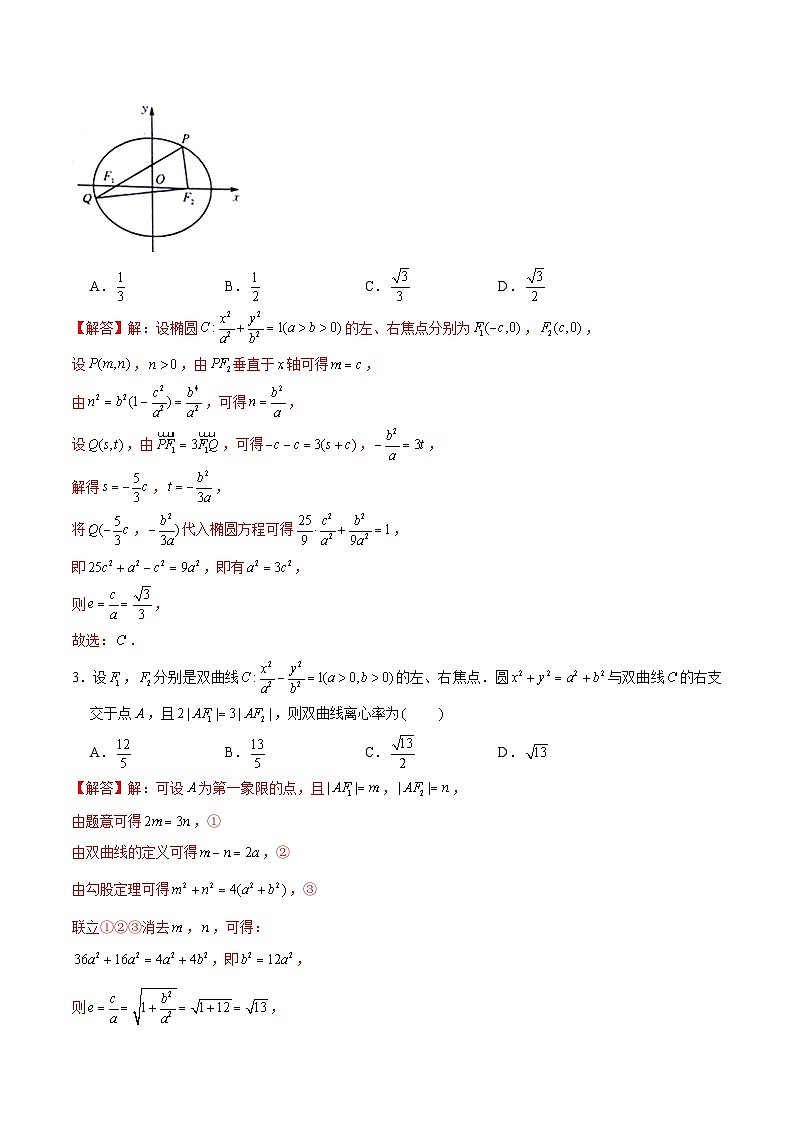 y
P
F₁
O
Q
F₂
x
A. 1/3 B. 1/2 C. √3/3 D. √3/2
【解答】解:设椭圆C:x²/a²+y²/b²=1(a>b>0)的左、右焦点分别为F₁(-c,0),F₂(c,0),
设P(m,n),n>0,由PF₂垂直于x轴可得m=c,
由n²=b²(1-c²/a²)=b⁴/a²,可得n=b²/a,
设Q(s,t),由PF₁=3F₁Q,可得-c-c=3(s+c),-b²/a=3t,
解得s=-5/3c,t=-b²/3a,
将Q(-5/3c,-b²/3a)代入椭圆方程可得25/9·c²/a²+b²/9a²=1,
即25c²+a²-c²=9a²,即有a²=3c²,
则e=c/a=√3/3,
故选:C.
3.设F₁,F₂分别是双曲线C:x²/a²-y²/b²=1(a>0,b>0)的左、右焦点.圆x²+y²=a²+b²与双曲线C的右支
交于点A,且2|AF₁|=3|AF₂|,则双曲线离心率为( )
A. 12/5 B. 13/5 C. √13/2 D. √13
【解答】解:可设A为第一象限的点,且|AF₁|=m,|AF₂|=n,
由题意可得2m=3n,①
由双曲线的定义可得m-n=2a,②
由勾股定理可得m²+n²=4(a²+b²),③
联立①②③消去m,n,可得:
36a²+16a²=4a²+4b²,即b²=12a²,
则e=c/a=√(1+b²/a²)=√(1+12)=√13,